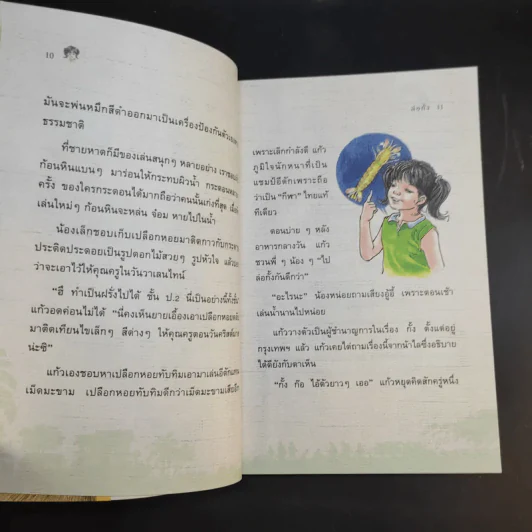 10
มันจะพ่นหมึกสีดำออกมาเป็นเครื่องป้องกันตัวเอง
ธรรมชาติ
ที่ชายหาดก็มีของเล่นสนุกๆ หลายอย่าง
ก้อนหินแบนๆ มาร่อนให้กระทบผิวน้ำ
ครั้ง ของใครกระดอนได้มากถือว่าคนนั้นเก่งที่สุด
เล่นใหม่ๆ ก้อนหินจะหล่น จ๋อม หายไปในน้ำ
น้องเล็กชอบเก็บเปลือกหอยมาติดกาวกับ
ประดิดประดอยเป็นรูปดอกไม้สวยๆ รูปหัวใจ
ว่าจะเอาไว้ให้คุณครูในวันวาเลนไทน์
"ฮึ ทำเป็นฝรั่งไปได้ ชั้น ป.2 นี่เป็นอย่างนี้ทั้ง
แก้วอดค่อนไม่ได้ "นี่คงเห็นยายเอื้องเอาเปลือกหอย
มาติดเทียนไขเล็กๆ สีต่างๆ ให้คุณครูตอนวันคริสต์
น่ะซิ"
แก้วเองชอบหาเปลือกหอยทับทิมเอามาเล่นอีตัก
เม็ดมะขาม เปลือกหอยทับทิมดีกว่าเม็ดมะขาม
ล่อกั้ง 11
เพราะเล็กกำลังดี แก้ว
ภูมิใจนักหนาที่เป็น
แชมป์อีตักเพราะถือ
ว่าเป็น "กีฬา" ไทยแท้
ทีเดียว
ตอนบ่าย ๆ หลัง
อาหารกลางวัน แก้ว
ชวนพี่ ๆ น้อง ๆ "ไป
ล่อกั้งกันดีกว่า"
"อะไรนะ" น้องหน่อยถามเสียงอู้อี้ เพราะตอนเช้า
เล่นน้ำนานไปหน่อย
แก้ววางตัวเป็นผู้ชำนาญการในเรื่อง กั้ง ตั้งแต่อยู่
กรุงเทพฯ แล้ว แก้วเคยไต่ถามเรื่องนี้จากน้าไลซึ่งอธิบาย
ได้ดียังกับตาเห็น
"กั้ง ก้อ ไอ้ตัวยาวๆ เออ" แก้วหยุดคิดสักครู่หนึ่ง